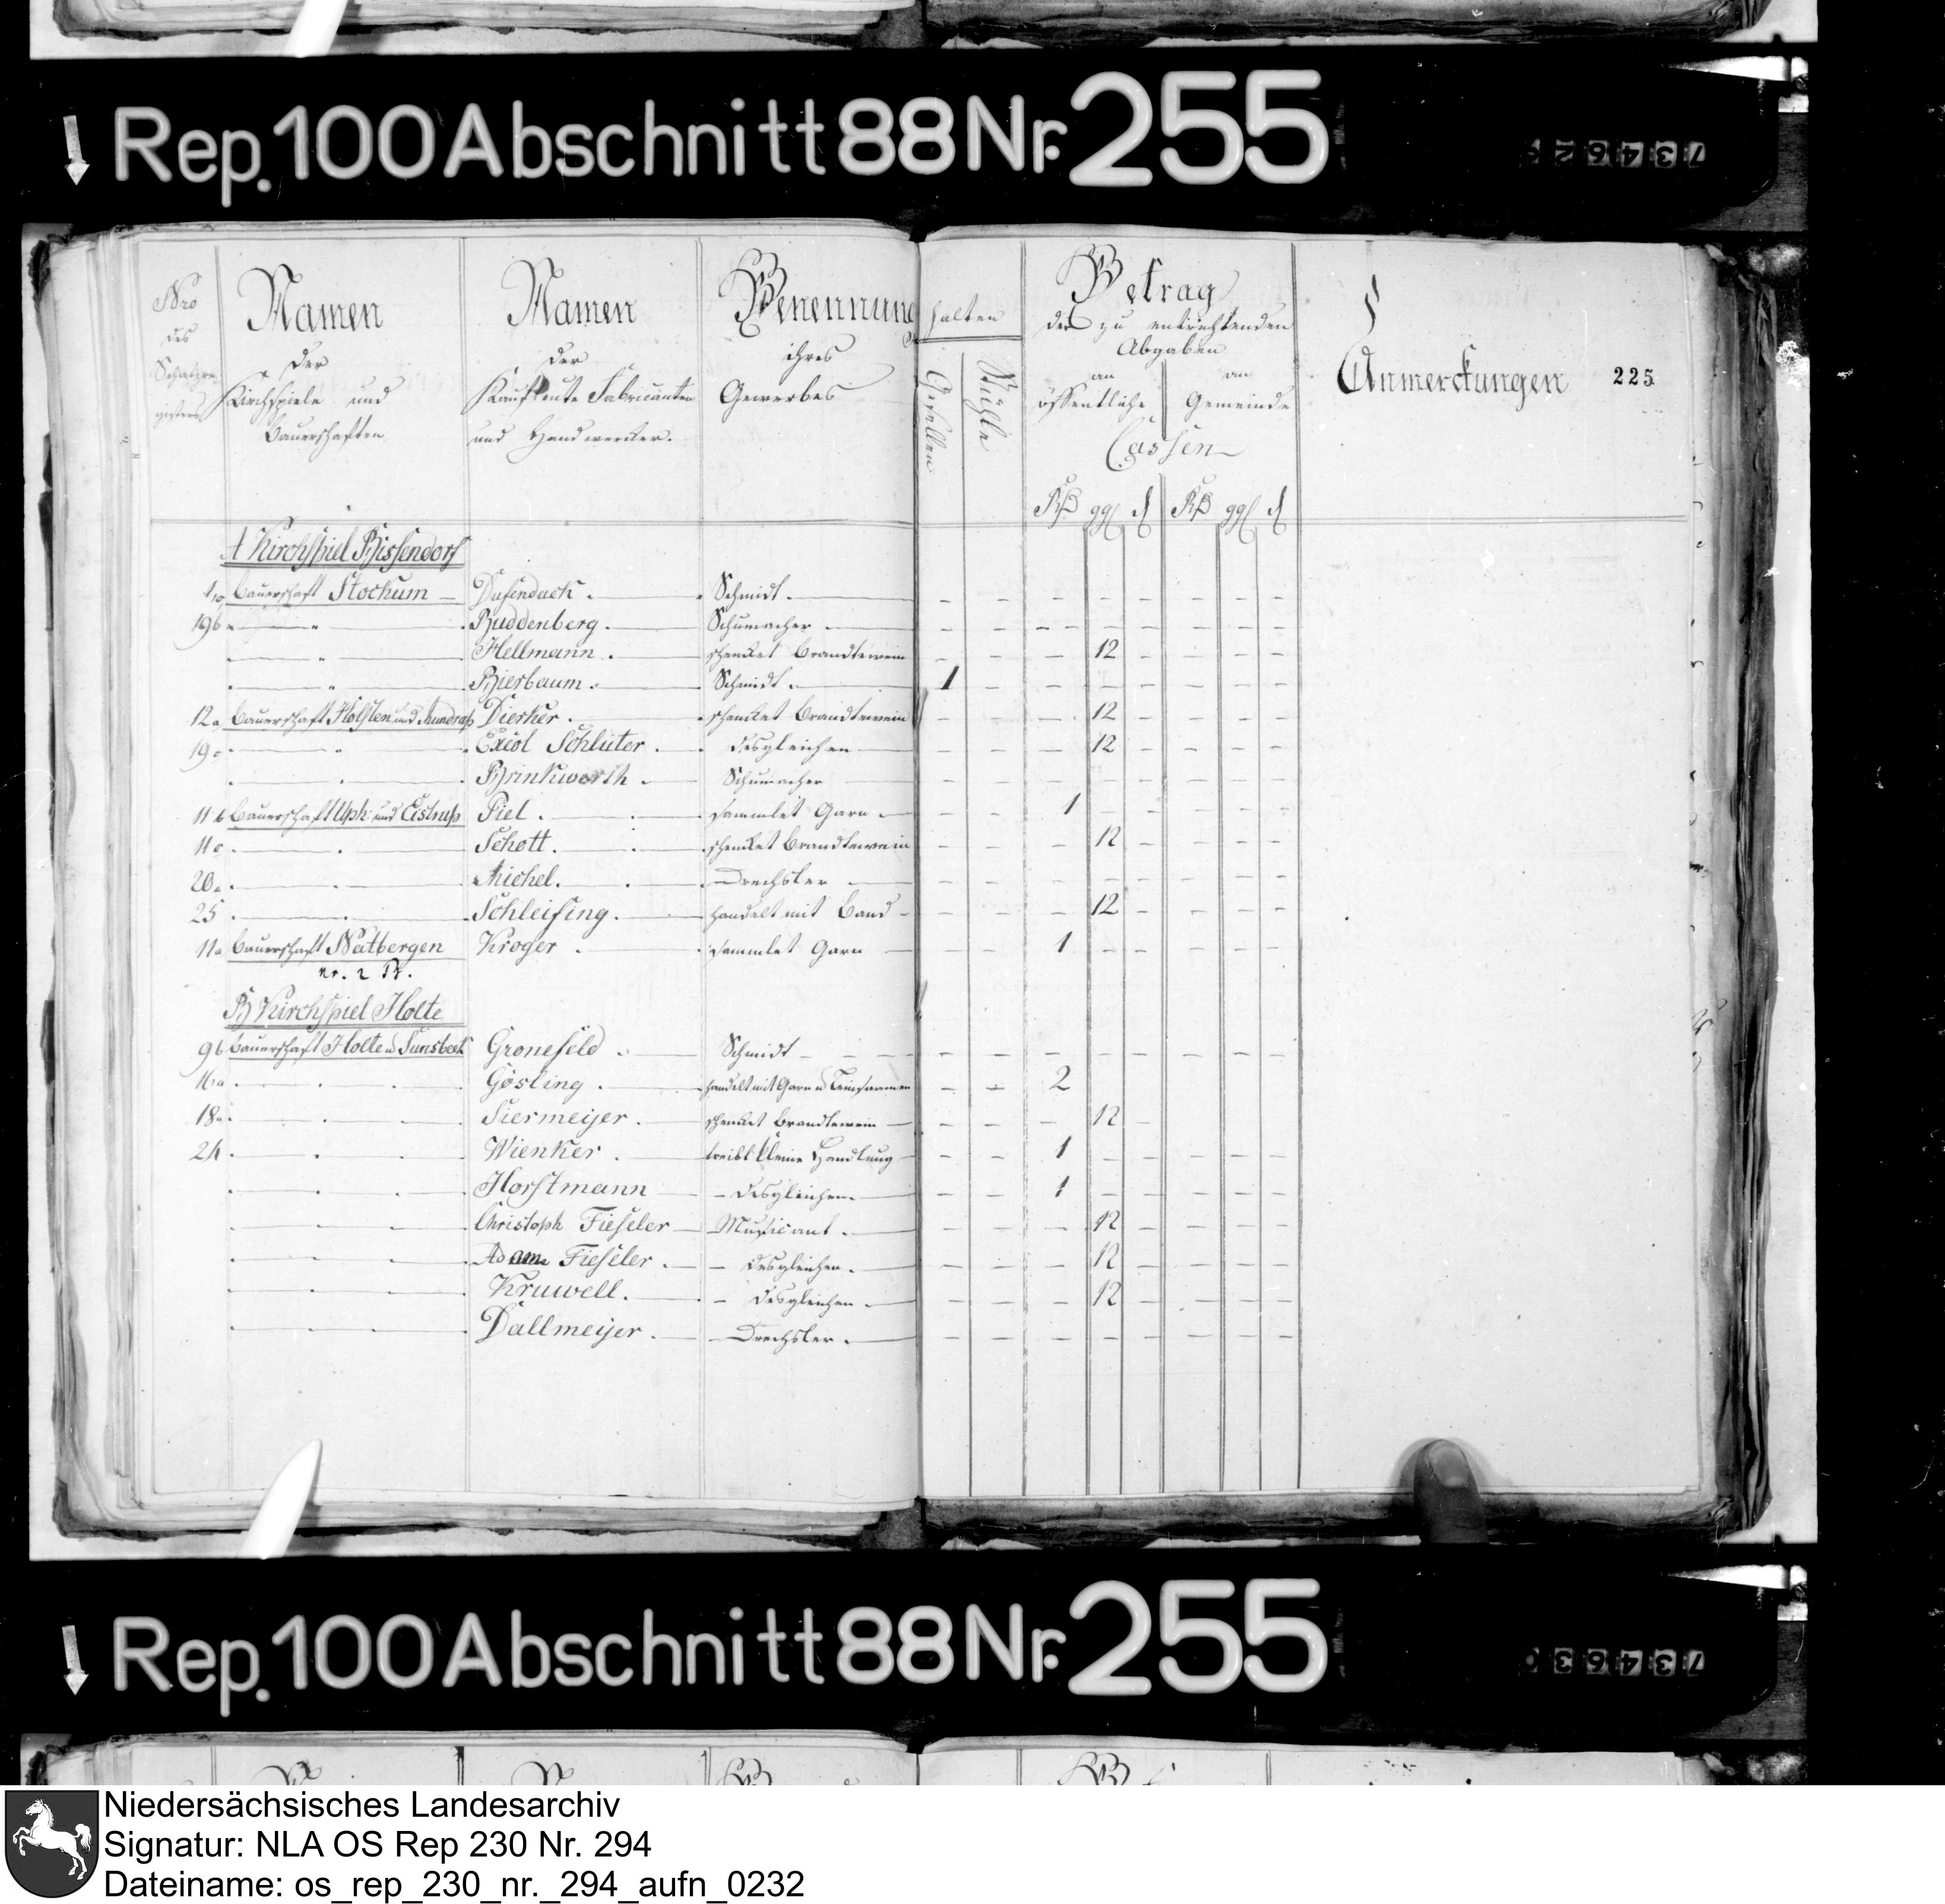 Rep. 100 Abschnitt 88 Nr. 255
Nro des Schatzregisters
Namen der Kirchspiele und Bauerschaften
Namen der Kaufleute Fabricanten und Handwercker.
Benennung ihres Gewerbes
halten
Gesellen
Stühle
Betrag der zu entrichtenden Abgaben
an öffentliche
an Gemeinde
Cassen
Anmerckungen
225
Rß ggl d Rß ggl d
A Kirchspiel Bissendorf
Bauerschaft Stockum Schmidt.
19b Buddenberg. Schumacher
Hellmann. schencket Brandtewein 12
Bierbaum. Schmidt. 1
12a Bauerschaft Holsten und Mundrup Dierker. schencket Brandtewein 12
19c Schlüter. desgleichen 12
Brinkworth. Schumacher
11b Bauerschaft Uph: und Eistrup Piel. sammlet Garn 1
11c Schott. schencket Brandtewein 12
20a Michel. Drechsler
25 Schleifing. handelt mit Band 12
11a Bauerschaft Natbergen Kröger. sammlet Garn 1
nr. 2 Pr.
B Kirchspiel Holte
9b Bauerschaft Holte u Sunsbeck Gronefeld. Schmidt
16a Gösling. handelt mit Garn u Leinsaamen 2
18a Siermeijer. schencket Brandtewein 12
24 Wienker. treibt kleine Handlung 1
Horstmann desgleichen 1
Christoph Fieseler Musicant. 12
Adam Fieseler. desgleichen. 12
Kruwell. desgleichen. 12
Dallmeijer. Drechsler.
Rep. 100 Abschnitt 88 Nr. 255
Niedersächsisches Landesarchiv
Signatur: NLA OS Rep 230 Nr. 294
Dateiname: os_rep_230_nr._294_aufn_0232